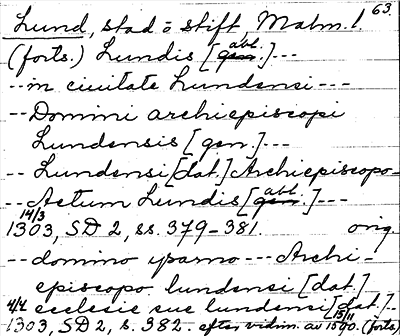 63.
Lund, stad o stift, Malm. l.
(forts.) Lundis [gen. abl.] ---
-- in ciuitate Lundensi ---
-- Domini archiepiscopi
Lundensis [gen.] ---
-- Lundensi [dat.] Archiepiscopo --
-- Actum Lundis [gen. abl.] ---
14/3
1303, SD 2, ss. 379-381. orig.
-- domino ysarno --- Archi-
episcopo lundensi [dat.]
4/4 ecclesie sue lundensi [dat.] --
1303, SD 2, s. 382. efter vidim. av 15/11 1590. (forts.)